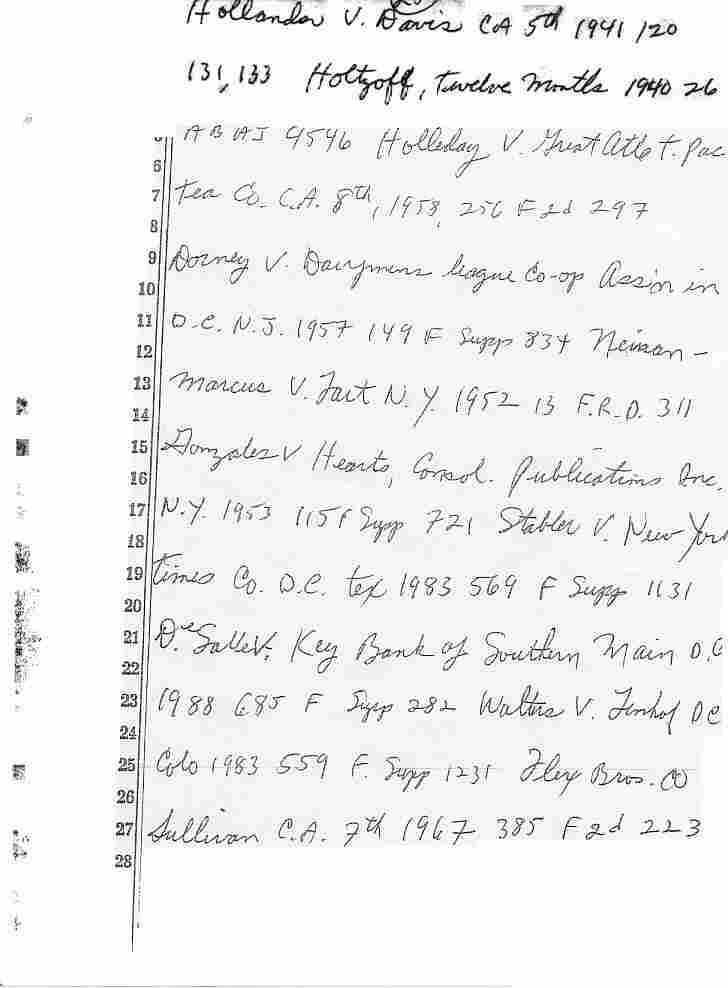 Hollander V. Davis CA 5th 1941 120
131, 133 Holtzoff, Twelve Months 1940 26
ABAJ 4546 Holleday V. Great Atl & t. Pac
6
7 Tea Co. C.A. 8th, 1958, 256 F 2d 297
8
9 Dorney V. Dairymens league Co-op Ass'n in
10
11 D.C. N.J. 1957 149 F Supp 834 Neiman -
12
13 Marcus V. Lait N.Y. 1952 13 F.R.D. 311
14
15 Gonzales V Hearts, Consol. Publications Inc.
16
17 N.Y. 1953 115 F Supp 721 Stabler V. New York
18
19 times Co. D.C. tex 1983 569 F Supp 1131
20
21 De Salle V. Key Bank of Southern Main D.C
22
23 1988 685 F Supp 282 Walters V. Linhof DC
24
25 Colo 1983 559 F. Supp 1231 Flex Bros. CO
26
27 Sullivan C.A. 7th 1967 385 F 2d 223
28